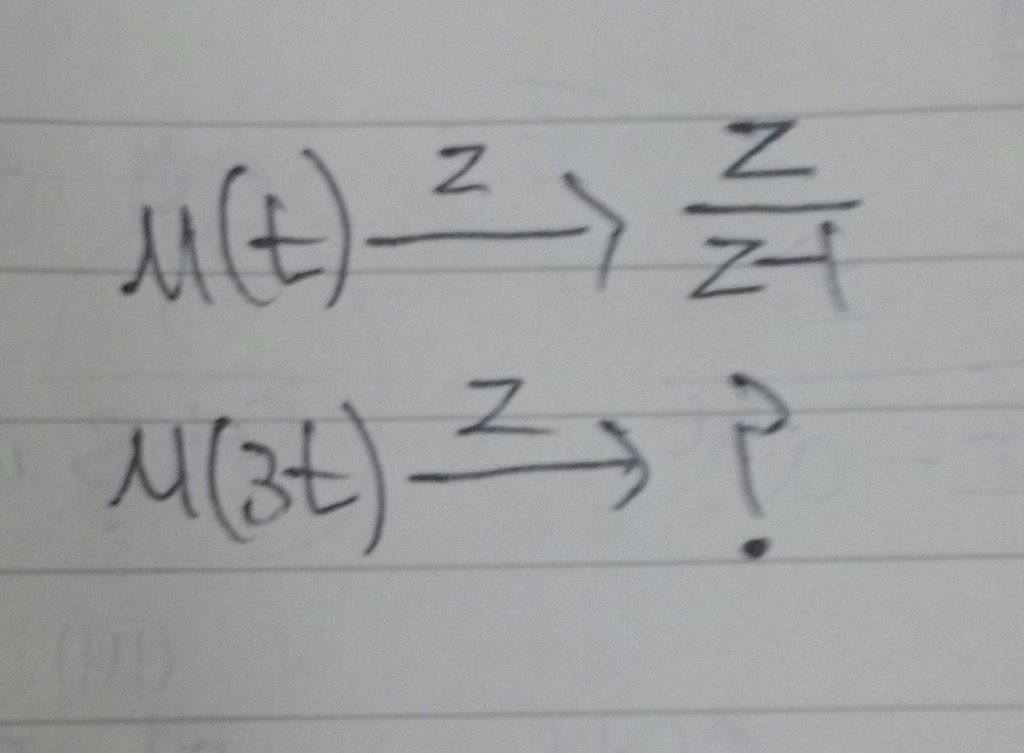 μ(t) —z→ z/z-1
μ(3t) —z→ ?